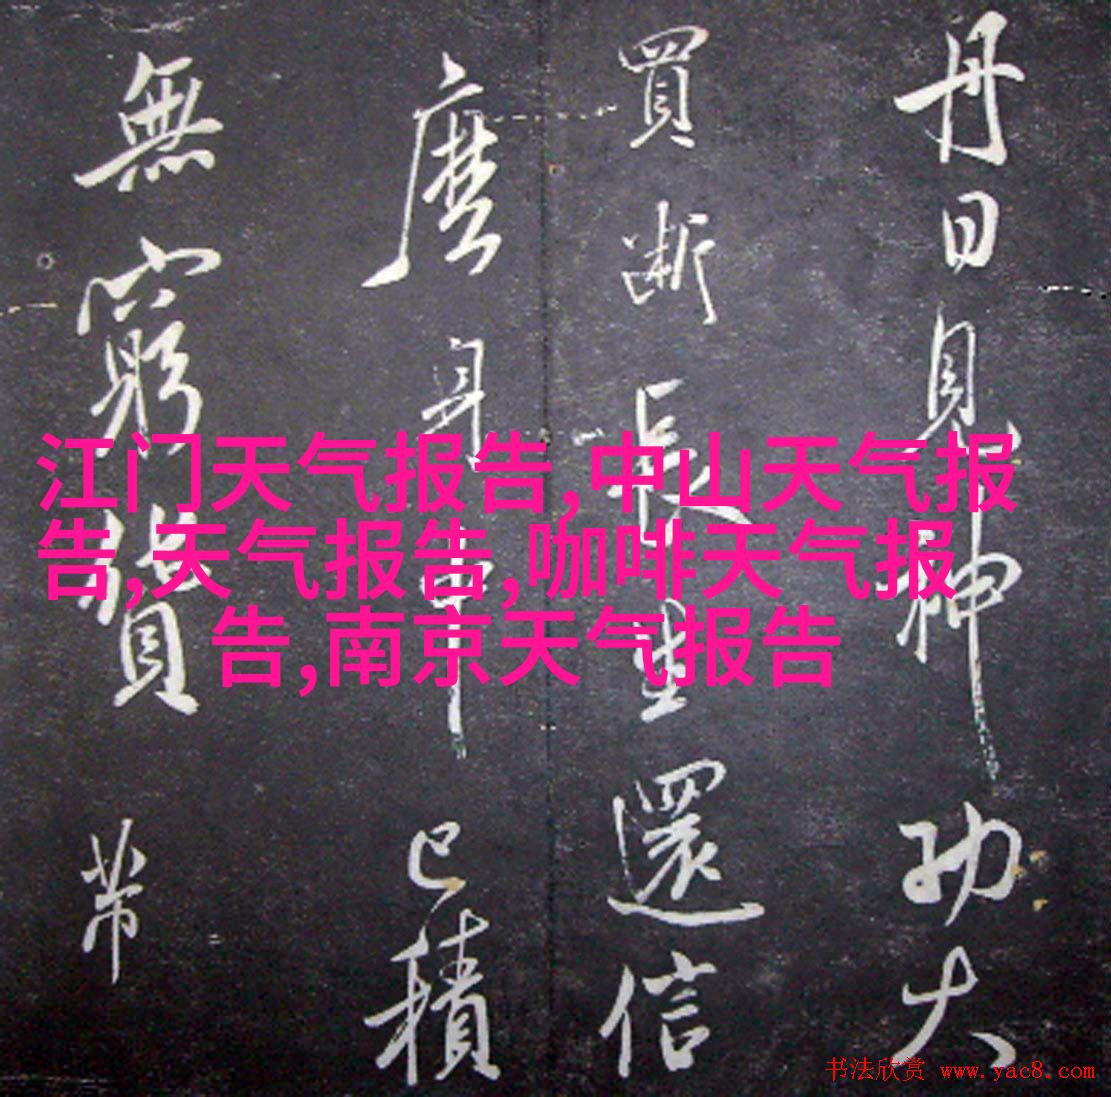 丹日見神功大
買斷長生還信
麈身中已積
無窮貲带
江门天气报告,中山天气报
告,天气报告,咖啡天气报
告,南京天气报告
书法欣赏 www.yac8.com